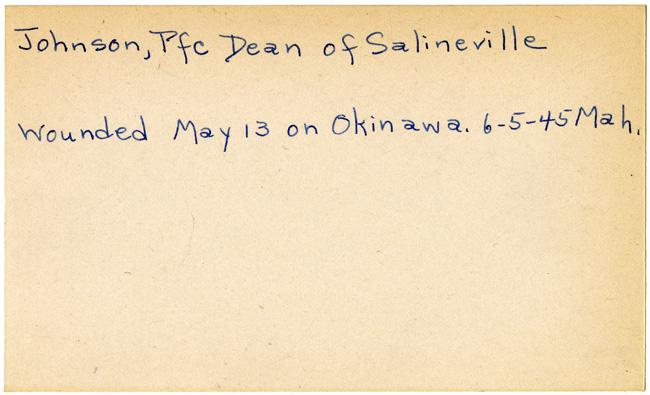 Johnson, Pfc Dean of Salineville
Wounded May 13 on Okinawa. 6-5-45 Mah.